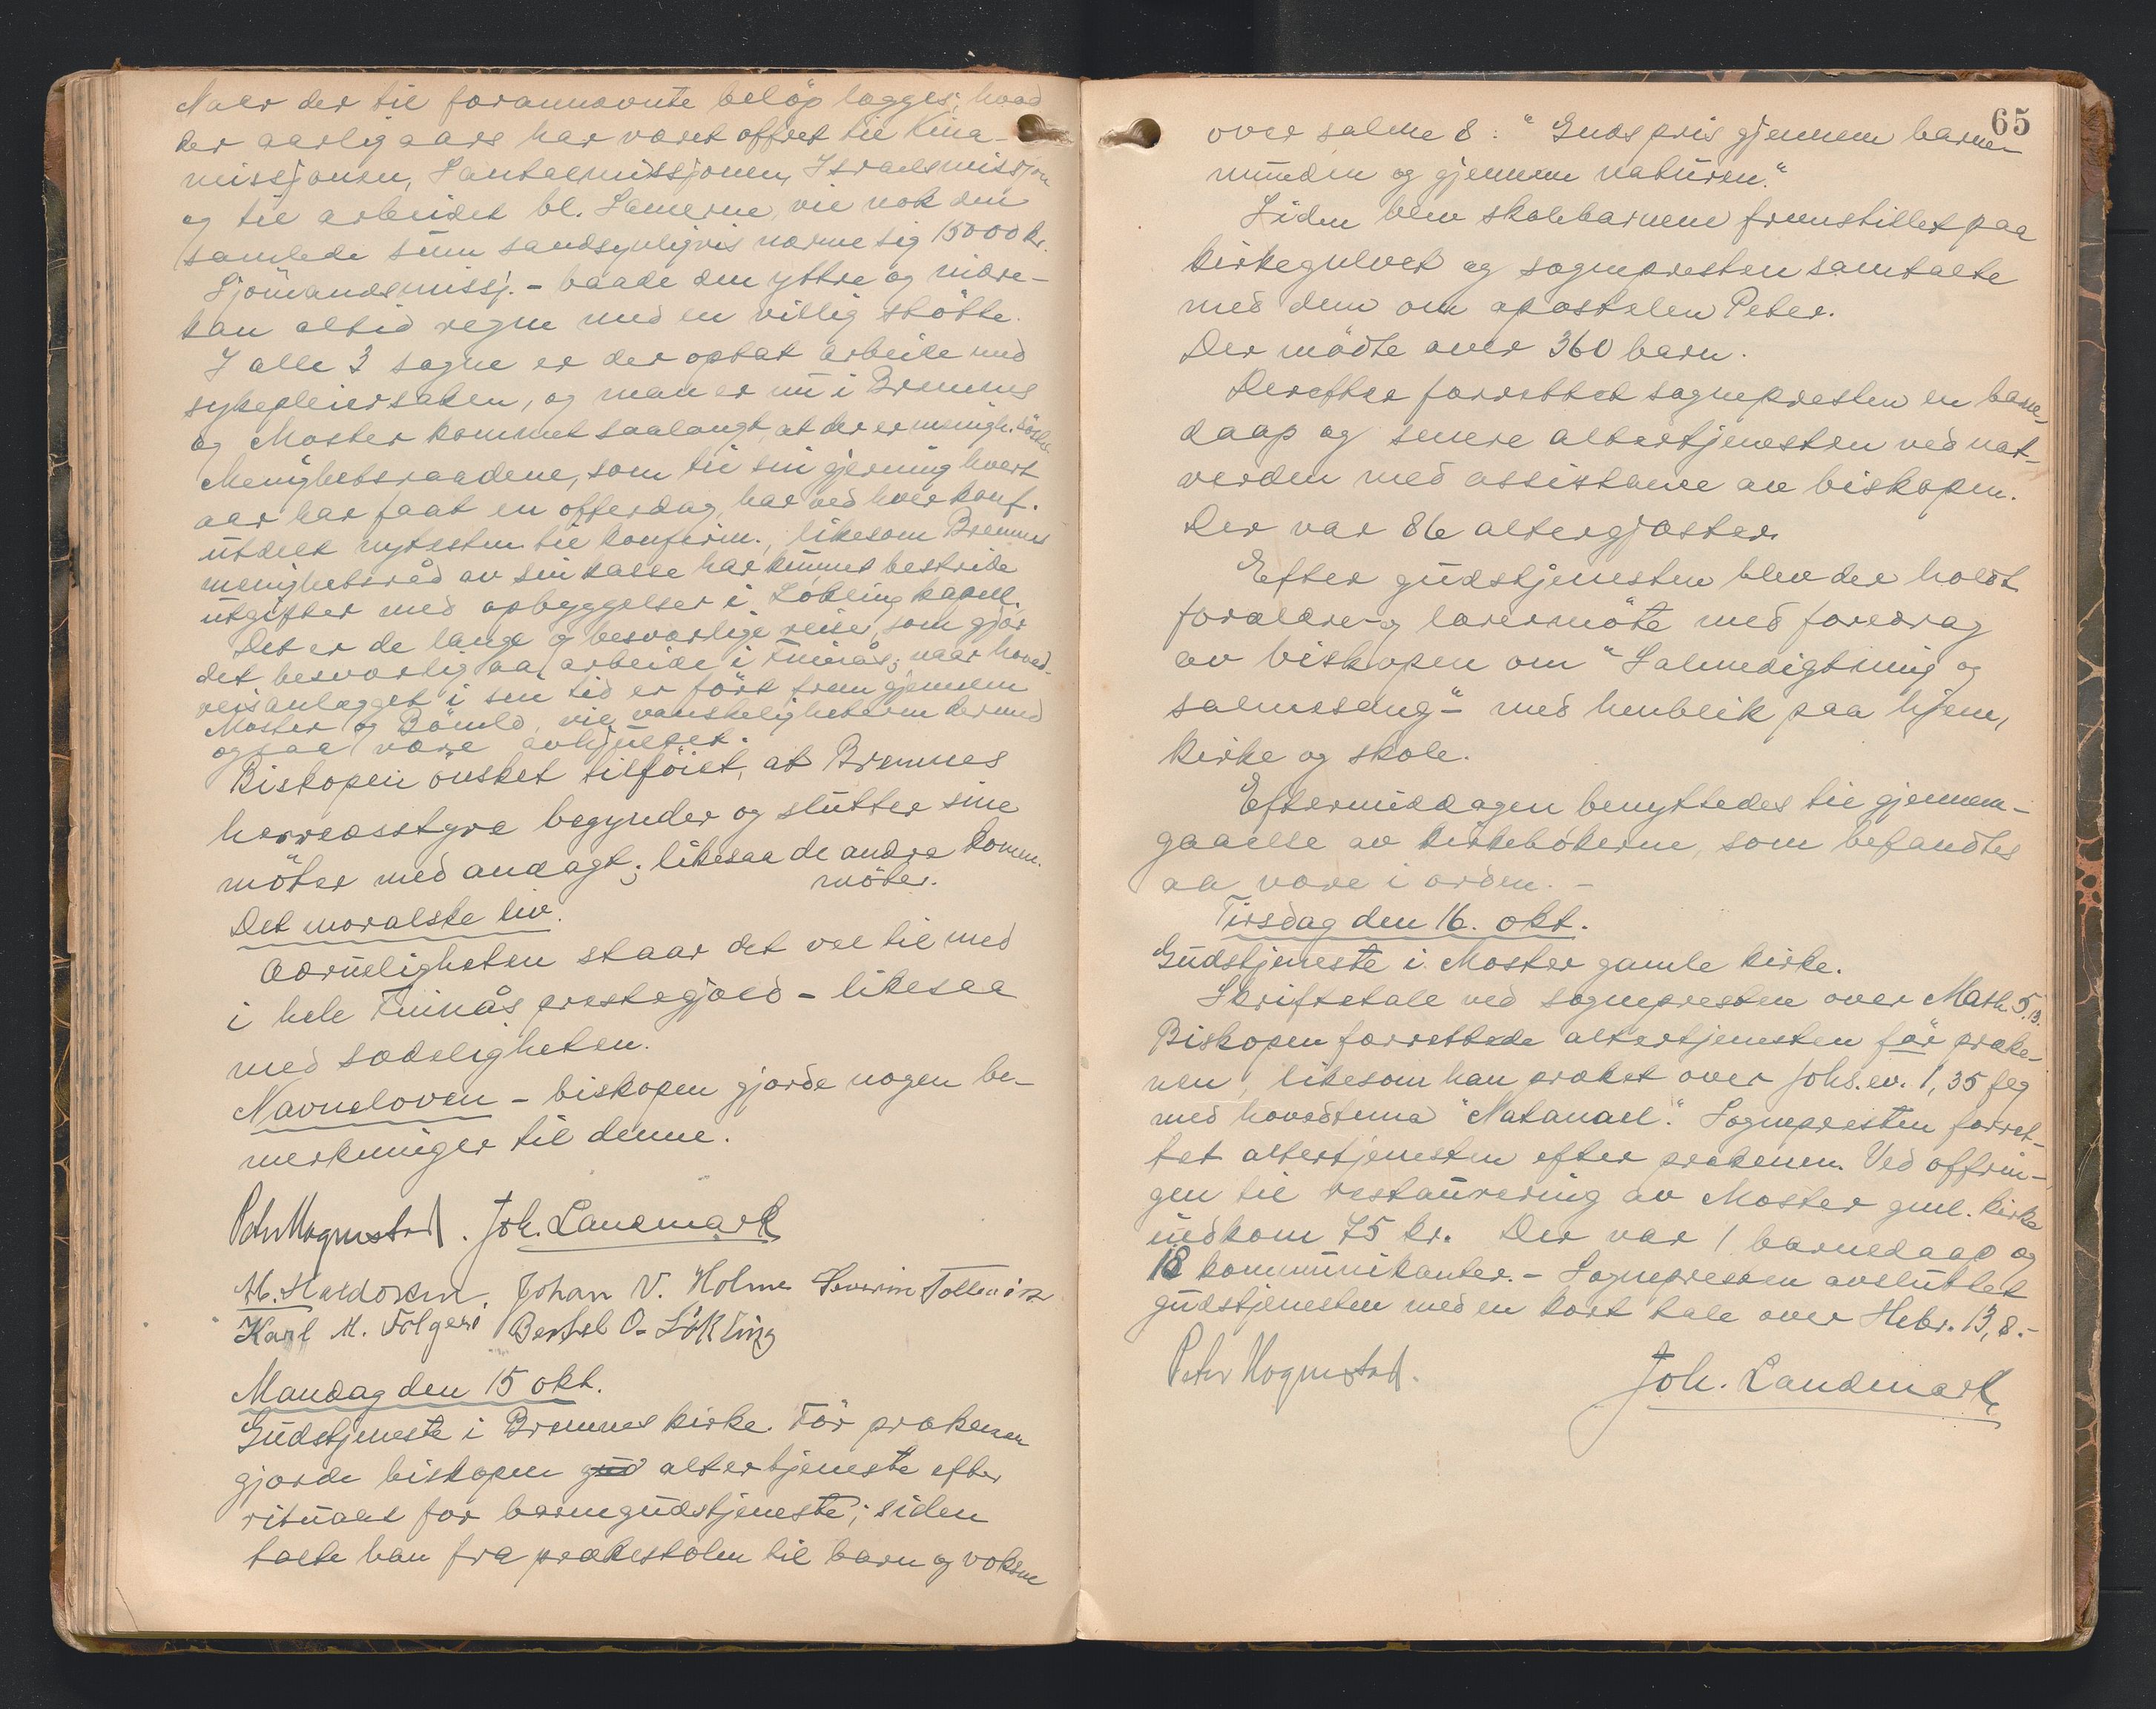 Naar der til forannævnte beløp lægges, hvad
der aarlig aars har været offret til Kina-
missjonen, Santalmissjonen, Israelsmissjon
og til arbeidet bl. Samerne, vil nok den
samlede sum sandsynligvis nærme sig 15000 kr.
Sjömandsmissj. - baade den yttre og indre -
kan altid regne med en villig støtte.
I alle 3 sogne er der optat arbeide med
sykepleiersaken, og man er nu i Bremnes
og Moster kommet saalangt, at der er menigh.söster.
Menighetsraadene, som til sin gjerning hvert
aar har faat en offerdag, har ved hver konf.
utdelt nytesten. til konfirm., likesom Bremnes
menighetsråd av sin kasse har kunnet bestride
utgifter med opbyggelser i Lökling kapell.
Det er de lange og besværlige reiser, som gjör
det besværlig aa arbeide i Finnås; naar hoved-
veisanlægget i sin tid er fört frem gjennem
Moster og Bömlo, vil vanskeligheterne dermed
ogsaa være avhjulpet.
Biskopen önsket tilföiet, at Bremnes
herredsstyre begynder og slutter sine
möter med andagt; likesaa de andre komm.
möter.
Det moralske liv.
Ædrueligheten staar det vel til med
i hele Finnås prestegjæld - likesaa
med sædeligheten.
Navneloven - biskopen gjorde nogen be-
merkninger til denne.
Peter Hognestad. Joh. Landmark
M. Haldorsen. Johan V. Holme Severin
Karl M. Folgerö Bertel O. Lökling
Mandag den 15 okt.
Gudstjeneste i Bremnes kirke. För prækenen
gjorde biskopen gud altertjeneste efter
ritualet for barnegudstjeneste; siden
talte han fra prækestolen til barn og voksne
65
over salme 8: "Guds pris gjennem barne-
munden og gjennem naturen."
Siden blev skolebarnene fremstillet paa
kirkegulvet og sognepresten samtalte
med dem om apostelen Peter.
Der mödte over 360 barn.
Derefter forrettet sognepresten en barne-
daap og senere altertjenesten ved nat-
verden med assistanse av biskopen.
Der var 86 altergjæster.
Efter gudstjenesten blev der holdt
forældre- og lærermöte med foredrag
av biskopen om "Salmedigtning og
salmesang" - med henblik paa hjem,
kirke og skole.
Eftermiddagen benyttedes til gjennem-
gaaelse av kirkebökerne, som befandtes
aa være i orden. -
Tirsdag den 16. okt.
Gudstjeneste i Moster gamle kirke.
Skriftetale ved sognepresten over Math. 5,13.
Biskopen forrettede altertjenesten för præke-
nen, likesom han præket over Johs. ev. 1,35 flg
med hovedtema "Natanael". Sognepresten forret-
tet altertjenesten efter prækenen. Ved offrin-
gen til restaurering av Moster gml. kirke
indkom 75 kr. Der var 1 barnedaap og
18 kommunikanter. - Sognepresten avsluttet
gudstjenesten med en kort tale over Hebr. 13,8. -
Peter Hognestad. Joh. Landmark